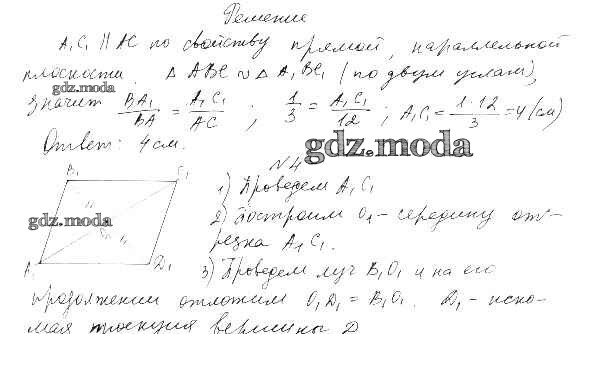 Решение
A₁C₁ || AC по свойству прямой, параллельной
плоскости. △ ABC ∾ △ A₁BC₁ (по двум углам),
значит BA₁/BA = A₁C₁/AC ; 1/3 = A₁C₁/12 ; A₁C₁ = 1·12/3 = 4 (см)
Ответ: 4 см.
gdz.moda
N 4
B₁ C₁
1) Проведем A₁C₁
gdz.moda
2) Построим O₁ - середину от-
резка A₁C₁.
A₁ D₁
3) Проведем луч B₁O₁ и на его
продолжении отложим O₁D₁ = B₁O₁. D₁ - иско-
мая проекция вершины D